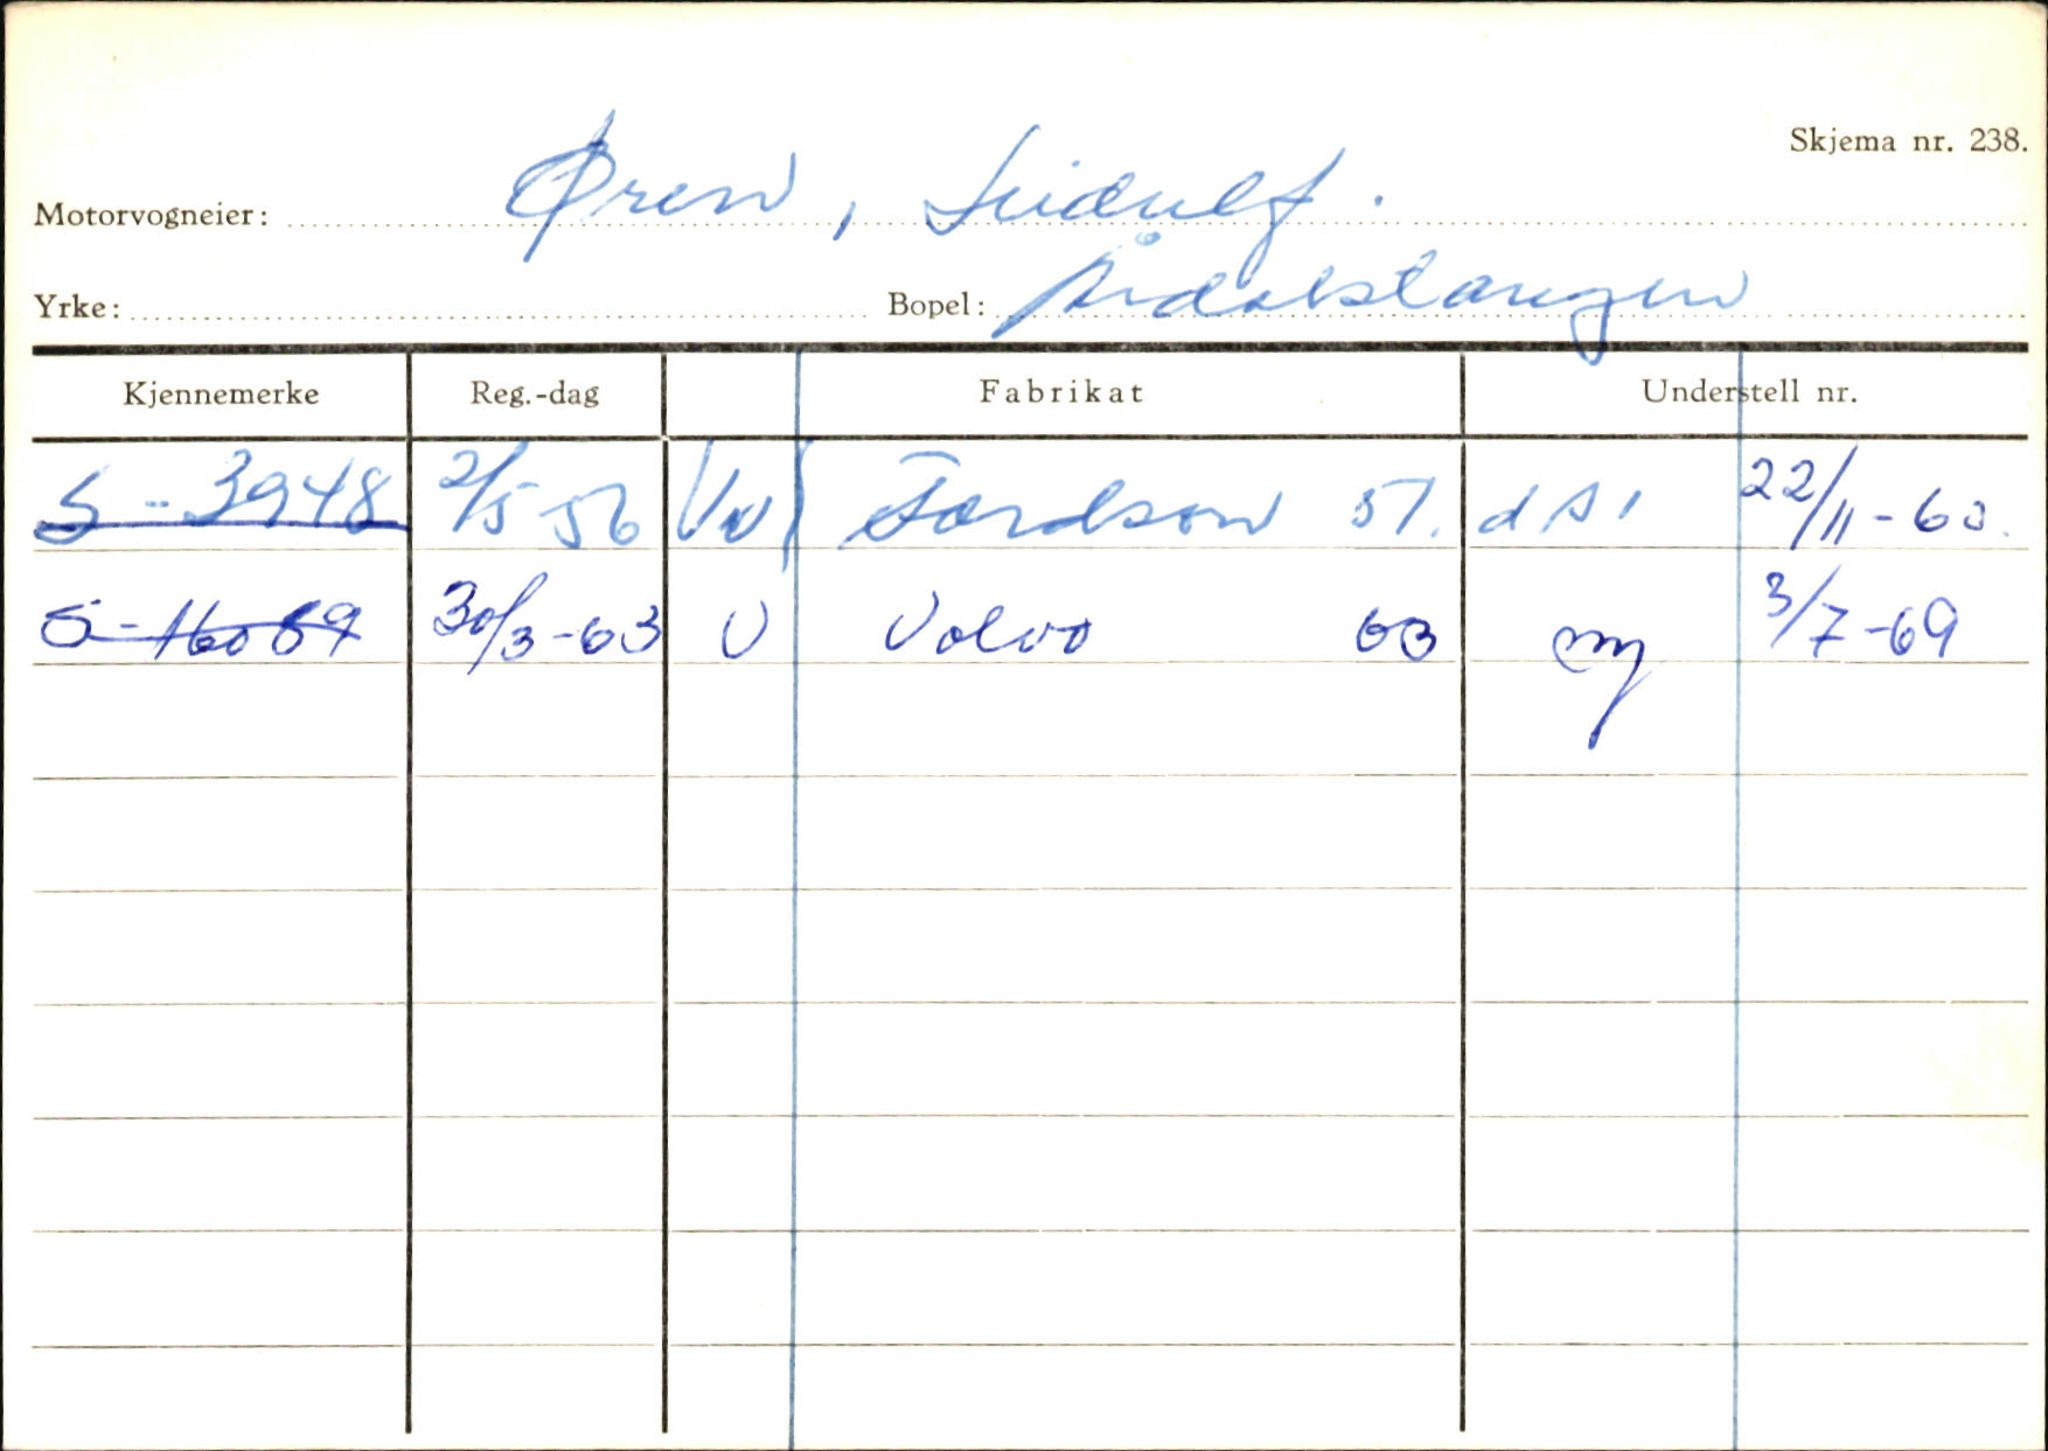 Skjema nr. 238.
Motorvogneier: Øren, Leidulf.
Yrke: Bopel: Årdalstangen
Kjennemerke Reg.-dag Fabrikat Understell nr.
S-3948 2/5-56 Vv Fordson 51. d A1 22/11-60.
S-16089 30/3-63 V Volvo 63 ny 3/7-69